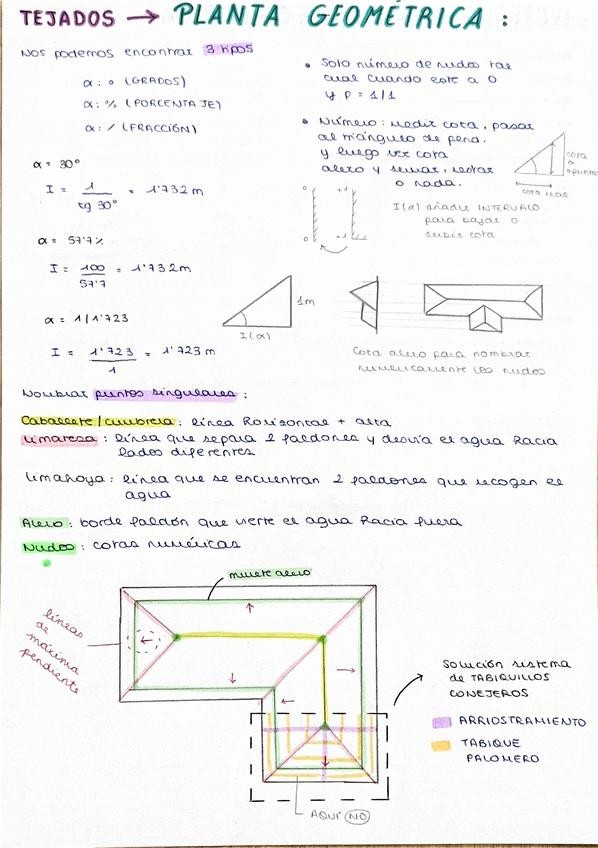 TEJADOS → PLANTA GEOMÉTRICA :
Nos podemos encontrar 3 tipos
α : ° (GRADOS)
α : % (PORCENTAJE)
α : / (FRACCIÓN)
α = 30°
I = 1 / tg 30° = 1'732 m
α = 57'7%
I = 100 / 57'7 = 1'732m
α = 1/1'723
I = 1'723 / 1 = 1'723 m
• Solo número de nudos tal
cual cuando este a 0
y P = 1/1
• Número: medir cota, pasar
al triángulo de pend.
y luego ver cota
alero y sumar, restar
o nada.
cota
a
apuntar
cota real
0
0
+1
+1
I(α) añadir INTERVALO
para bajar o
subir cota
1m
I(α)
Cota alero para nombrar
numéricamente los nudos
Nombrar puntos singulares :
Caballete/cumbrera : línea horizontal + alta
Limatesa : línea que separa 2 faldones y desvía el agua hacia
lados diferentes
Limahoya : línea que se encuentran 2 faldones que recogen el
agua
Alero : borde faldón que vierte el agua hacia fuera
Nudos : cotas numéricas
murete alero
líneas
de
máxima
pendiente
Solución sistema
de TABIQUILLOS
CONEJEROS
ARRIOSTRAMIENTO
TABIQUE
PALOMERO
AQUÍ NO